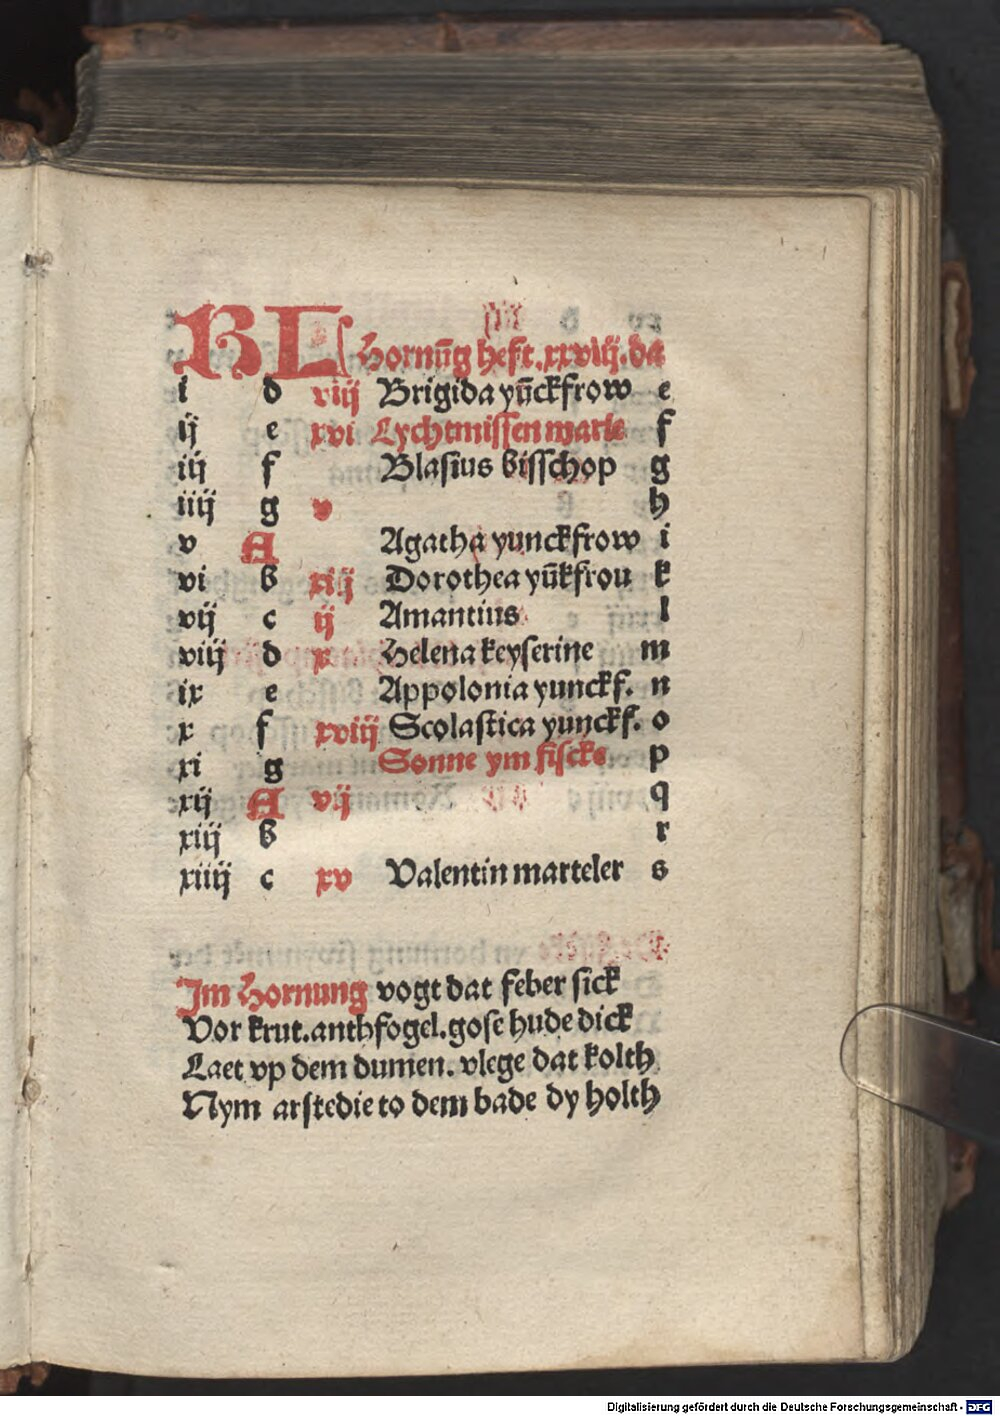 KL Hornūg heft.xxviij.da
i d viij Brigida yūckfrow e
ij e xvi Lychtmissen marie f
iij f Blasius bisschop g
iiij g v h
v A Agatha yunckfrow i
vi b xiij Dorothea yūkfrou k
vij c ij Amantius l
viij d x Helena keyserine m
ix e Appolonia yunckf. n
x f xviij Scolastica yunckf. o
xi g Sonne ym fiscke p
xij A vij q
xiij b r
xiiij c xv Valentin marteler s
Jm Hornung vogt dat feber sick
Vor krut.anthfogel.gose hude dick
Laet vp dem dumen. vlege dat kolth
Nym arstedie to dem bade dy holth
Digitalisierung gefördert durch die Deutsche Forschungsgemeinschaft - DFG